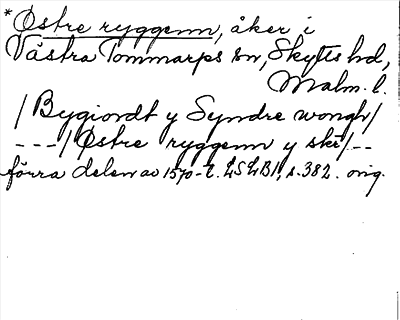 *Østre ryggenn, åker i
Västra Tommarps sn, Skytts hd,
Malm. l.
/Bygiordt y Syndre wongh/
---/Østre ryggenn y skè/--
förra delen av 1570-t. LSLB1, s. 382. orig.